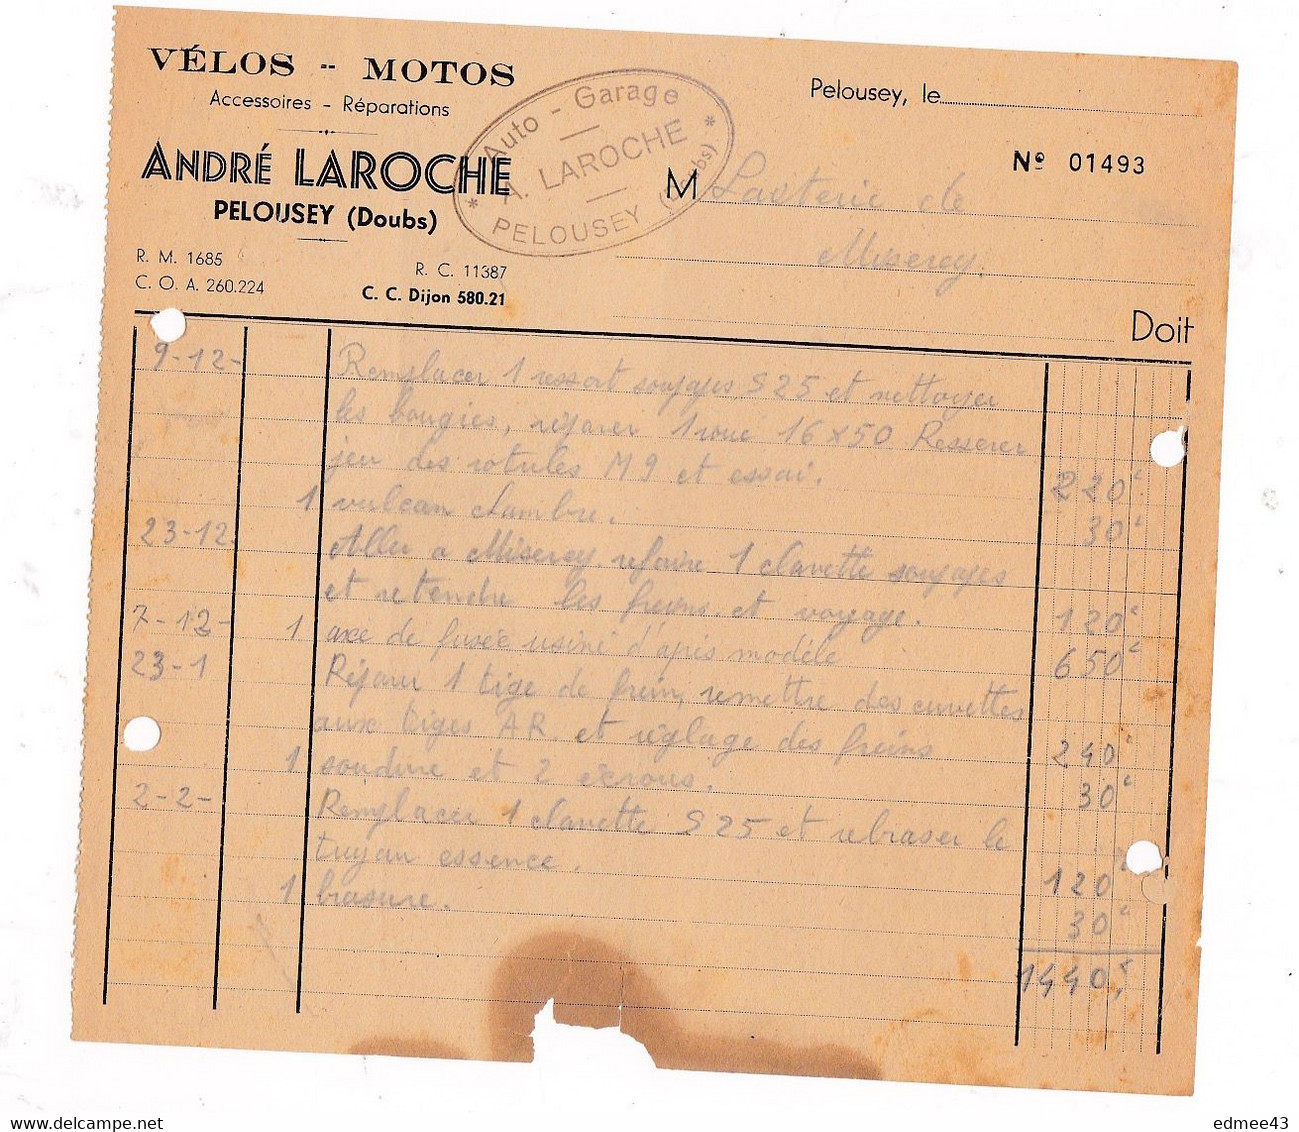 VÉLOS -- MOTOS
Accessoires - Réparations
ANDRÉ LAROCHE
PELOUSEY (Doubs)
R. M. 1685
C. O. A. 260.224
R. C. 11387
C. C. Dijon 580.21
* Auto - Garage *
A. LAROCHE
PELOUSEY (Doubs)
Pelousey, le
Nº 01493
M de
Miserey.
Doit
9-12- Remplacer 1 ressort soupapes S25 et nettoyer
les bougies, réparer 1 roue 16 x 50 Resserer
jeu des rotules M9 et essai. 220
1 vulcan chambre. 30
23-12. Aller a Miserey refaire 1 clavette soupapes
et retendre les freins et voyage. 120
7-12- 1 axe de fusée usiné d'apris modèle 650
23-1 Réparer 1 tige de frein, remettre des cuvettes
aux tiges AR. et réglage des freins 240
1 soudure et 2 écrous. 30
2-2- Remplacer 1 clavette S25 et rebraser le
tuyau essence. 120
1 brasure. 30
1440,
edmee43